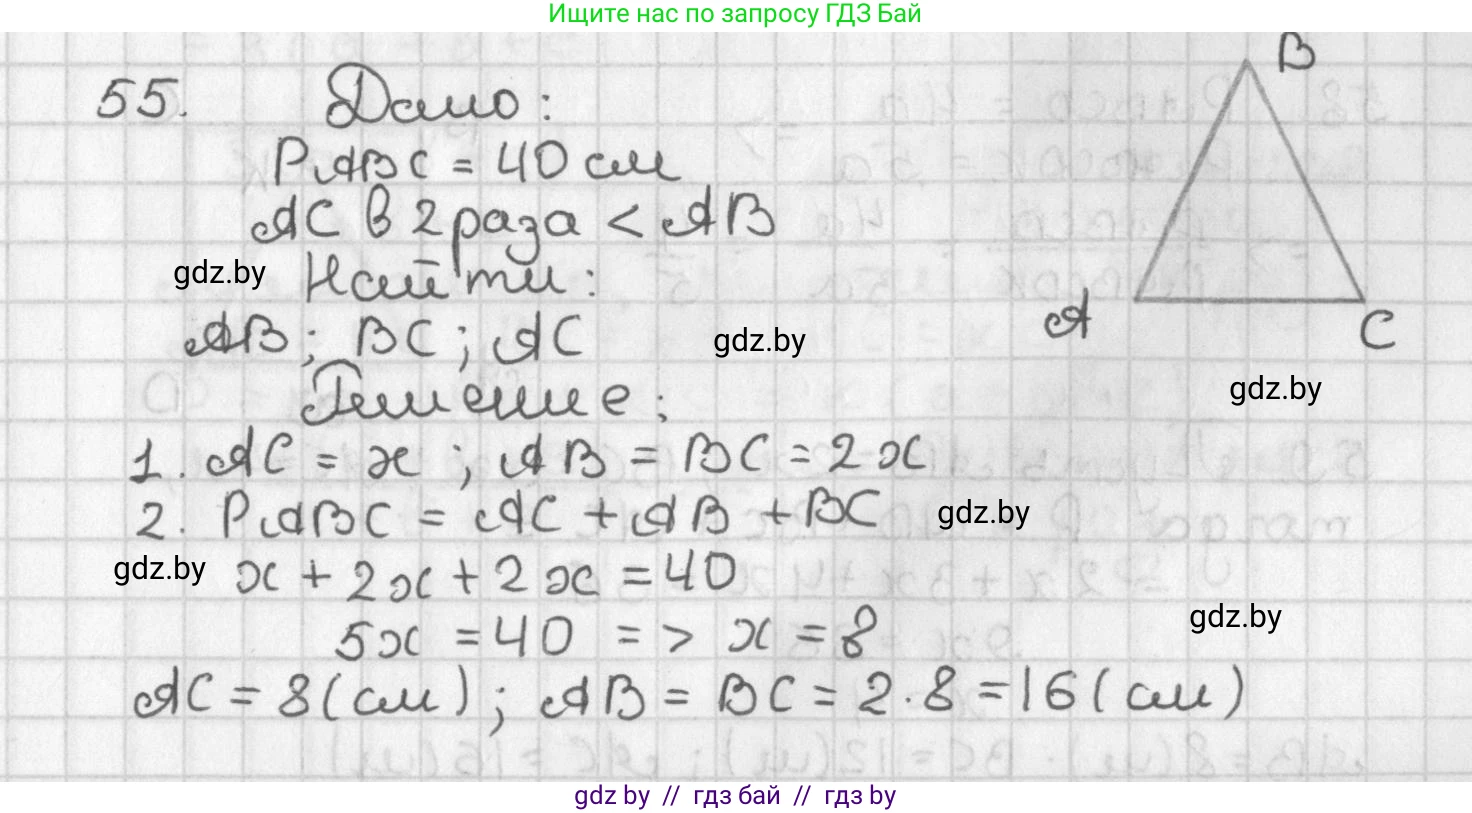 Ищите нас по запросу ГДЗ Бай
55. Дано:
B
PABC = 40 см
AC в 2 раза < AB
gdz.by
Найти:
AB; BC; AC
gdz.by
A
C
gdz.by
Решение:
1. AC = x ; AB = BC = 2x
2. PABC = AC + AB + BC
gdz.by
gdz.by
x + 2x + 2x = 40
gdz.by
5x = 40 => x = 8
AC = 8 (см) ; AB = BC = 2 · 8 = 16 (см)
gdz by // гдз бай // гдз by